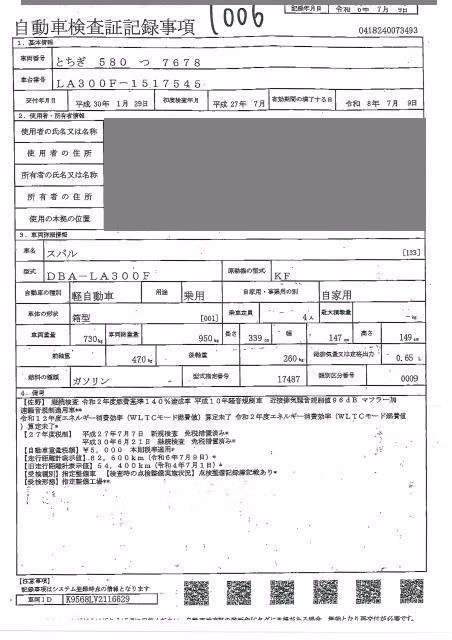 1006
記録年月日 令和 6年 7月 9日
自動車検査証記録事項
0418240073493
1. 基本情報
車両番号 とちぎ 580 つ 7678
車台番号 LA300F-1517545
交付年月日 平成 30年 1月 29日 初度検査年月 平成 27年 7月 有効期間の満了する日 令和 8年 7月 9日
2. 使用者・所有者情報
使用者の氏名又は名称
使用者の住所
所有者の氏名又は名称
所有者の住所
使用の本拠の位置
3. 車両詳細情報
車名 スバル [133]
型式 DBA-LA300F 原動機の型式 KF
自動車の種別 軽自動車 用途 乗用 自家用・事業用の別 自家用
車体の形状 箱型 [001] 乗車定員 4人 最大積載量 -kg
車両重量 730kg 車両総重量 950kg 長さ 339cm 幅 147cm 高さ 149cm
前軸重 470kg 後軸重 260kg 総排気量又は定格出力 0.65L
燃料の種類 ガソリン 型式指定番号 17487 類別区分番号 0009
4. 備考
【佐野】 継続検査 令和2年度燃費基準140%達成車 平成10年騒音規制車 近接排気騒音規制値96dB マフラー加
速騒音規制適用車**
令和12年度エネルギー消費効率(WLTCモード燃費値)算定未了 令和2年度エネルギー消費効率(WLTCモード燃費値
)算定未了*
【27年度税制】 平成27年7月7日 新規検査 免税措置済み*
平成30年6月21日 継続検査 免税措置済み*
【自動車重量税額】 ¥5,000 本則税率適用*
【走行距離計表示値】 62,600km(令和6年7月9日)
【旧走行距離計表示値】 54,400km(令和4年7月1日)
【受検種別】指定整備車 【検査時の点検整備実施状況】点検整備記録簿記載あり*
【受検形態】指定整備工場**
【注意事項】
記載事項はシステム登録時点の情報となります
車両ID K9568LV2116629